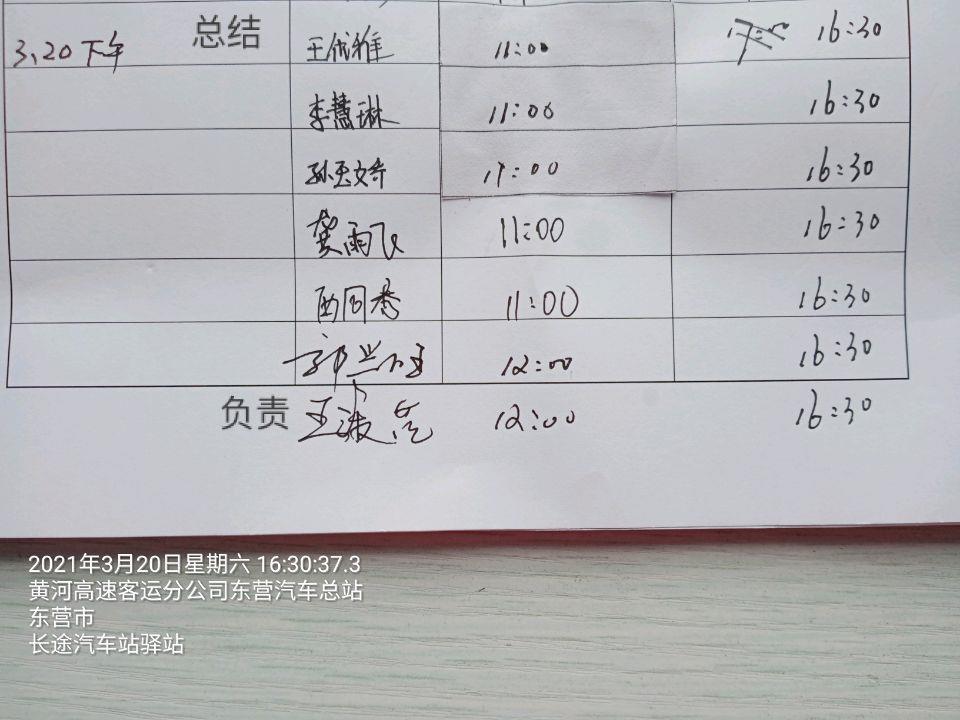 3.20 下午 总结 王代雅 11:00 16:30
李慧琳 11:00 16:30
孙天文奇 11:00 16:30
龚雨飞 11:00 16:30
西同春 11:00 16:30
12:00 16:30
负责 王淑 12:00 16:30
2021年3月20日星期六 16:30:37.3
黄河高速客运分公司东营汽车总站
东营市
长途汽车站驿站